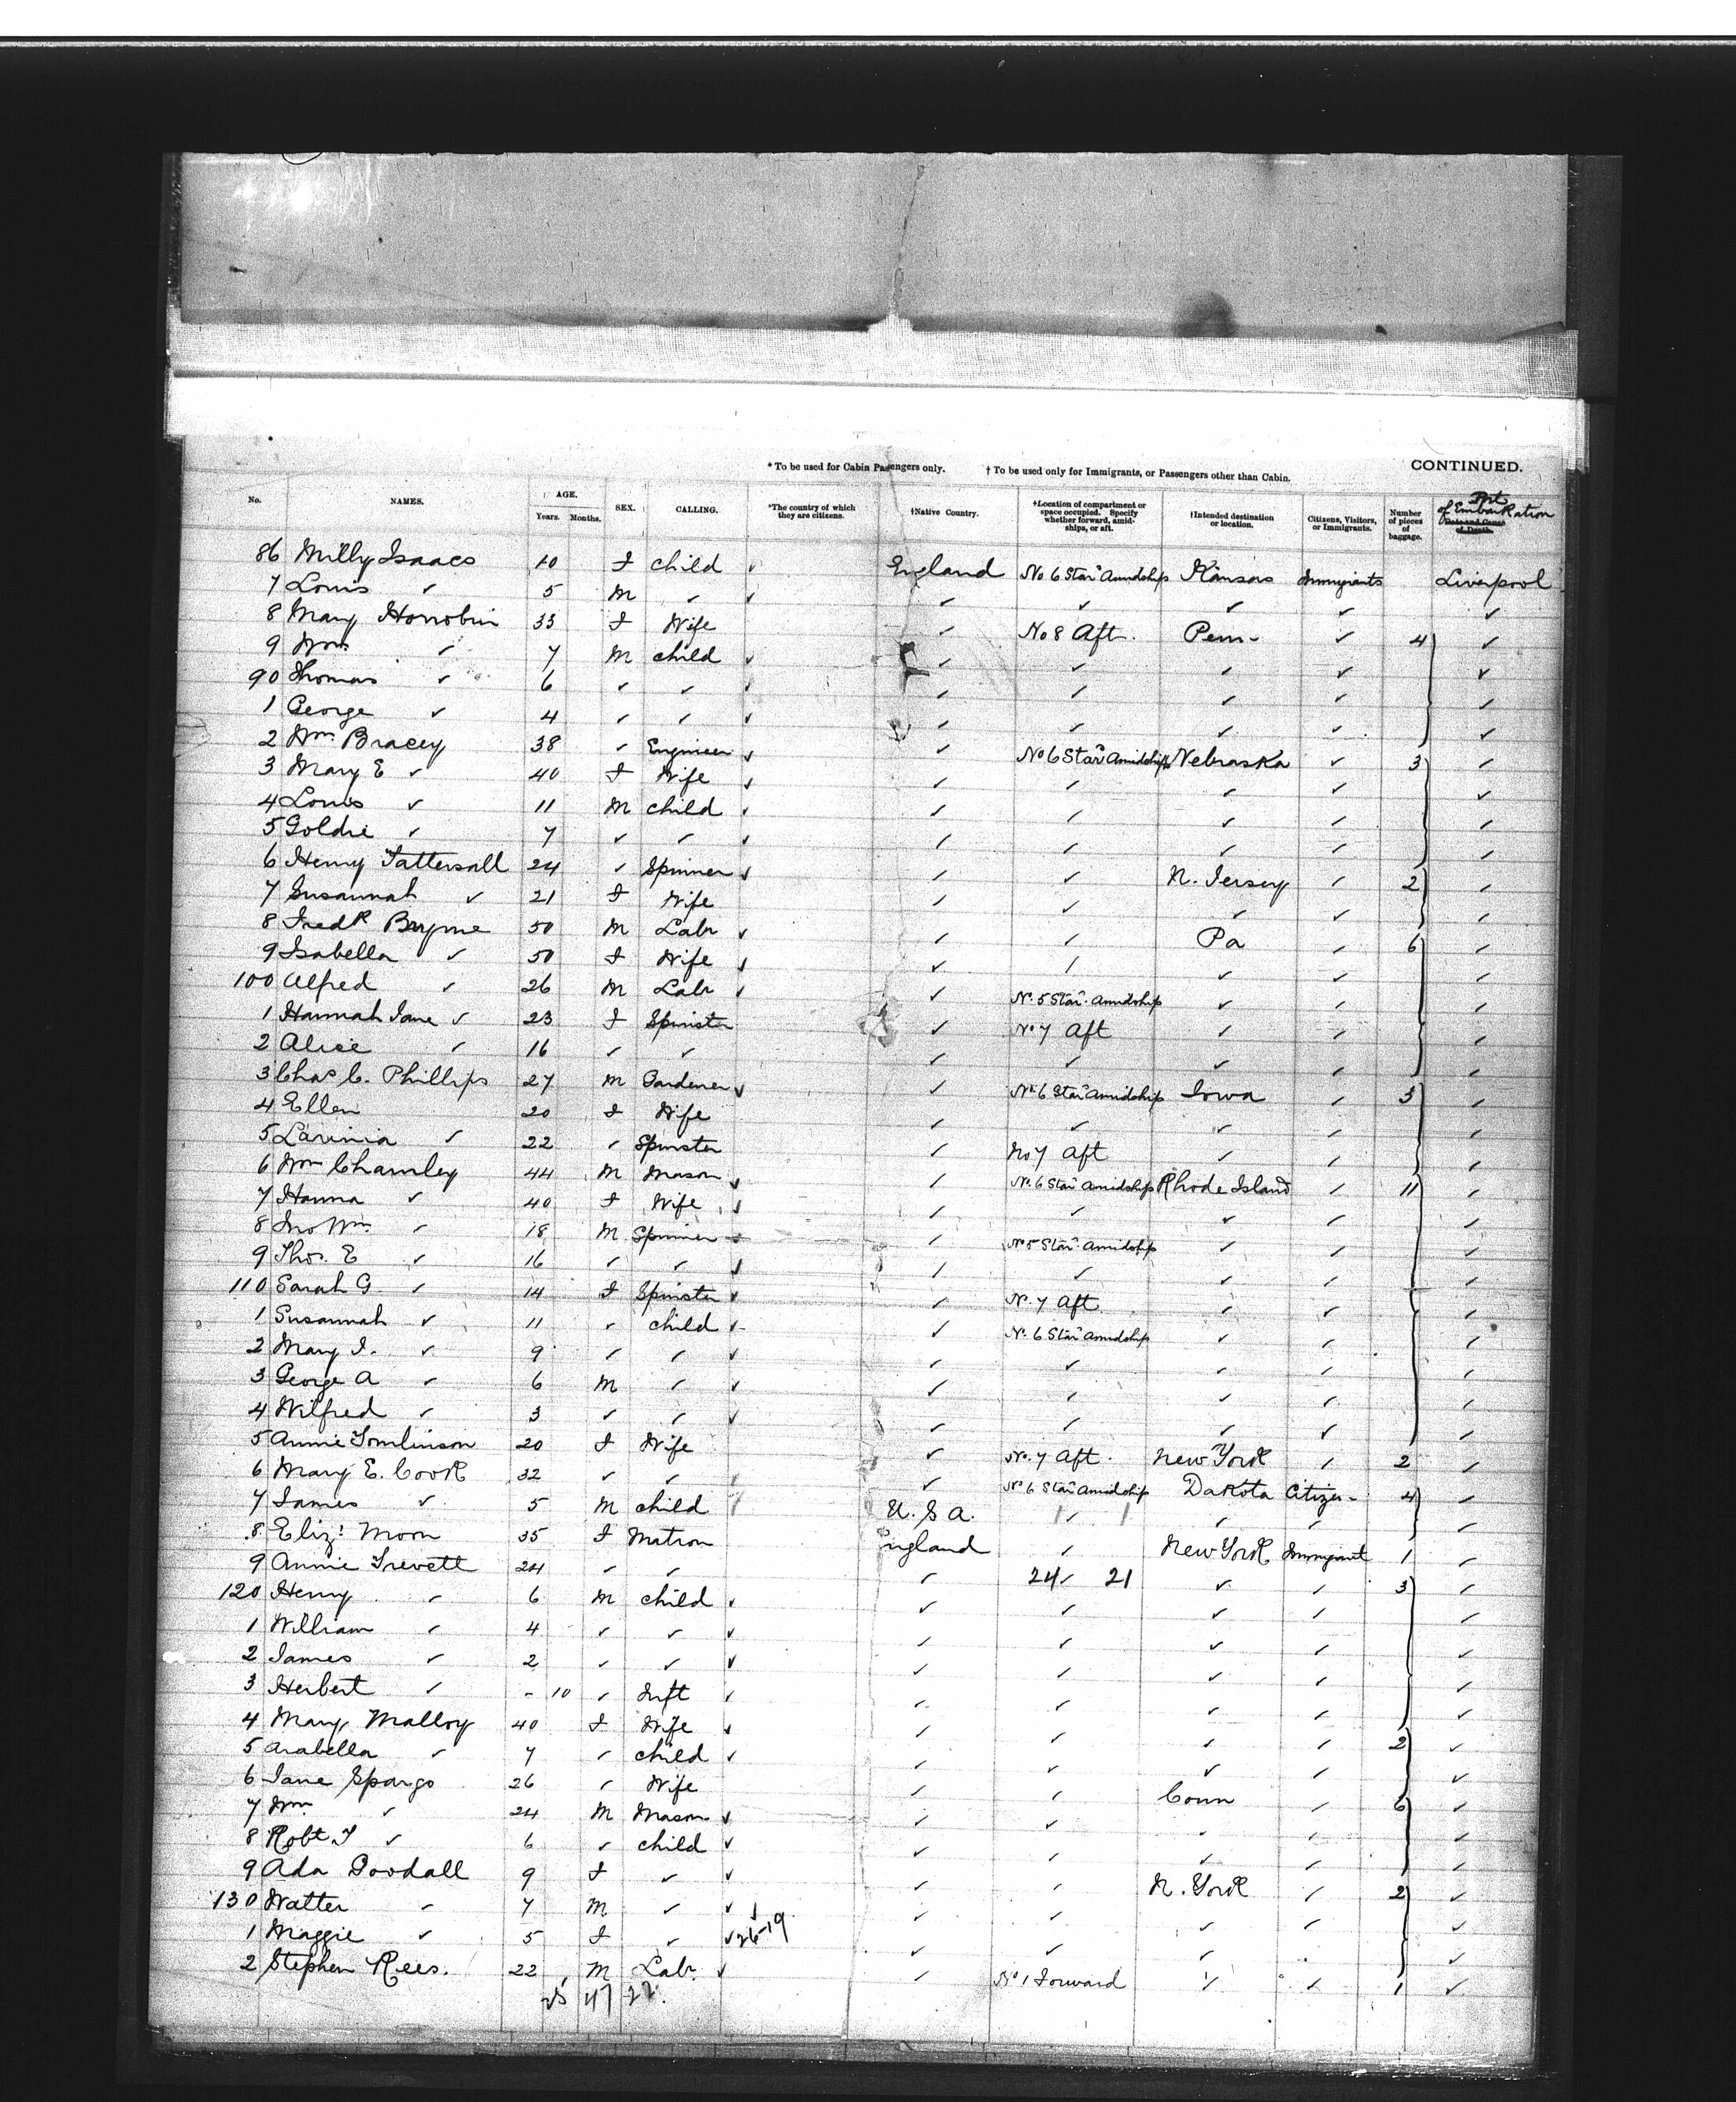 * To be used for Cabin Passengers only. † To be used only for Immigrants, or Passengers other than Cabin. CONTINUED.
No. NAMES. AGE. Years. Months. SEX. CALLING. *The country of which they are citizens. †Native Country. †Location of compartment or space occupied. Specify whether forward, amidships, or aft. †Intended destination or location. Citizens, Visitors, or Immigrants. Number of pieces of baggage. Port of Embarkation Date and Cause of Death.
86 Milly Isaacs 10 F child ✓ England No 6 Star Amidship Kansas Immigrants Liverpool
7 Louis ✓ 5 M ✓ ✓ ✓ ✓ ✓ ✓ ✓
8 Mary Horrobin 33 F Wife ✓ No 8 Aft. Penn- ✓ 4 ✓
9 Wm ✓ 7 M child ✓ ✓ ✓ ✓ ✓ ✓
90 Thomas ✓ 6 ✓ ✓ ✓ ✓ ✓ ✓ ✓ ✓
1 George ✓ 4 ✓ ✓ ✓ ✓ ✓ ✓ ✓ ✓
2 Wm Bracey 38 ✓ Engineer ✓ ✓ No 6 Star Amidship Nebraska ✓ 3 ✓
3 Mary E ✓ 40 F Wife ✓ ✓ ✓ ✓ ✓ ✓
4 Louis ✓ 11 M child ✓ ✓ ✓ ✓ ✓ ✓
5 Goldie ✓ 7 ✓ ✓ ✓ ✓ ✓ ✓ ✓ ✓
6 Henry Tattersall 24 ✓ Spinner ✓ ✓ ✓ N. Jersey ✓ 2 ✓
7 Susannah ✓ 21 F Wife ✓ ✓ ✓ ✓ ✓
8 Fredk Bryne 50 M Labr ✓ ✓ ✓ Pa ✓ 6 ✓
9 Isabella ✓ 50 F Wife ✓ ✓ ✓ ✓ ✓ ✓
100 Alfred ✓ 26 M Labr ✓ ✓ No. 5 Star. Amidship ✓ ✓ ✓
1 Hannah Jane ✓ 23 F Spinster ✓ No 7 Aft ✓ ✓ ✓
2 Alice ✓ 16 ✓ ✓ ✓ ✓ ✓ ✓ ✓
3 Chas C. Phillips 27 M Gardener ✓ ✓ No 6 Star Amidship Iowa ✓ 3 ✓
4 Ellen 20 F Wife ✓ ✓ ✓ ✓ ✓
5 Lavinia ✓ 22 ✓ Spinster ✓ No 7 Aft ✓ ✓ ✓
6 Wm Charnley 44 M Mason ✓ ✓ No. 6 Star Amidship Rhode Island ✓ 11 ✓
7 Hanna ✓ 40 F Wife ✓ ✓ ✓ ✓ ✓ ✓
8 Jno Wm ✓ 18 M Spinner ✓ No 5 Star Amidship ✓ ✓ ✓
9 Thos. E ✓ 16 ✓ ✓ ✓ ✓ ✓ ✓ ✓ ✓
110 Sarah G. ✓ 14 F Spinster ✓ ✓ No. 7 Aft ✓ ✓ ✓
1 Susannah ✓ 11 ✓ child ✓ ✓ No. 6 Star Amidship ✓ ✓ ✓
2 Mary J. ✓ 9 ✓ ✓ ✓ ✓ ✓ ✓ ✓ ✓
3 George A ✓ 6 M ✓ ✓ ✓ ✓ ✓ ✓ ✓
4 Wilfred ✓ 3 ✓ ✓ ✓ ✓ ✓ ✓ ✓ ✓
5 Annie Tomlinson 20 F Wife ✓ No. 7 Aft. New York ✓ 2 ✓
6 Mary E. Cook 32 ✓ ✓ ✓ No 6 Star Amidship Dakota Citizen- 4 ✓
7 James ✓ 5 M child U. S A. ✓ ✓ ✓ ✓
8 Eliz: Moon 35 F Matron England ✓ New York Immigrant 1 ✓
9 Annie Trevett 24 ✓ ✓ ✓ 24 ✓ 21 ✓ ✓ 3 ✓
120 Henry ✓ 6 M child ✓ ✓ ✓ ✓ ✓ ✓
1 William ✓ 4 ✓ ✓ ✓ ✓ ✓ ✓ ✓ ✓
2 James ✓ 2 ✓ ✓ ✓ ✓ ✓ ✓ ✓ ✓
3 Herbert ✓ - 10 ✓ Inft ✓ ✓ ✓ ✓ ✓ ✓
4 Mary Malloy 40 F Wife ✓ ✓ ✓ ✓ ✓ 2 ✓
5 Arabella ✓ 7 ✓ child ✓ ✓ ✓ ✓ ✓ ✓
6 Jane Spargo 26 ✓ Wife ✓ ✓ Conn ✓ 6 ✓
7 Wm ✓ 24 M Mason ✓ ✓ ✓ ✓ ✓ ✓
8 Robt J ✓ 6 ✓ child ✓ ✓ ✓ ✓ ✓ ✓
9 Ada Goodall 9 F ✓ ✓ ✓ ✓ N. York ✓ 2 ✓
130 Walter ✓ 7 M ✓ ✓ ✓ ✓ ✓ ✓ ✓
1 Maggie ✓ 5 F ✓ ✓ 26-19 ✓ ✓ ✓ ✓
2 Stephen Rees. 22 M Labr. ✓ ✓ No 1 Forward ✓ ✓ 1 ✓